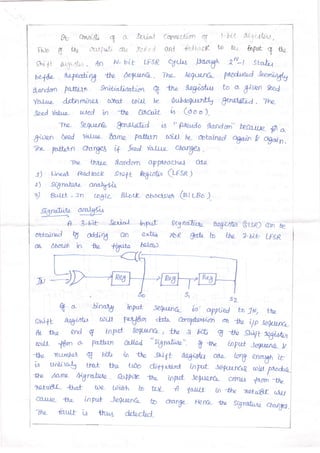 It consists of a serial connection of 1-bit registers,
Two of the outputs are XORed and fedback to the input of the
shift register. An N-bit LFSR cycles through 2ᴺ-1 states
before repeating the sequence. The sequence produced seemingly
random pattern. Initialization of the registers to a given seed
value determines what will be subsequently generated. The
seed value used in the circuit is (000).
The sequence generated is "pseudo random" because for a
given seed value same pattern will be obtained again & again.
The pattern changes if seed value changes.
The three random approaches are
1) Linear feedback shift Register (LFSR)
2) Signature analysis
3) Built-In logic Block observer (BILBO)
Signature analysis
A 3-bit serial input signature register (SISR) can be
obtained by adding an extra XOR gate to the 3-bit LFSR
as shown in the figure below
IN Reg Reg Reg
S0 S1 S2
If a binary input sequence is applied to IN, the
shift register will perform data compaction on the i/p sequence.
At the end of input sequence, the 3 bits of the shift register
will form a pattern called "Signature". If the input sequence &
the number of bits in the shift register are long enough it
is unlikely that the two different input sequences will produce
the same signature. Suppose the input sequence comes from the
network that we wish to test. A fault in the network will
cause the input sequence to change. Hence the signature changes.
The fault is thus detected.